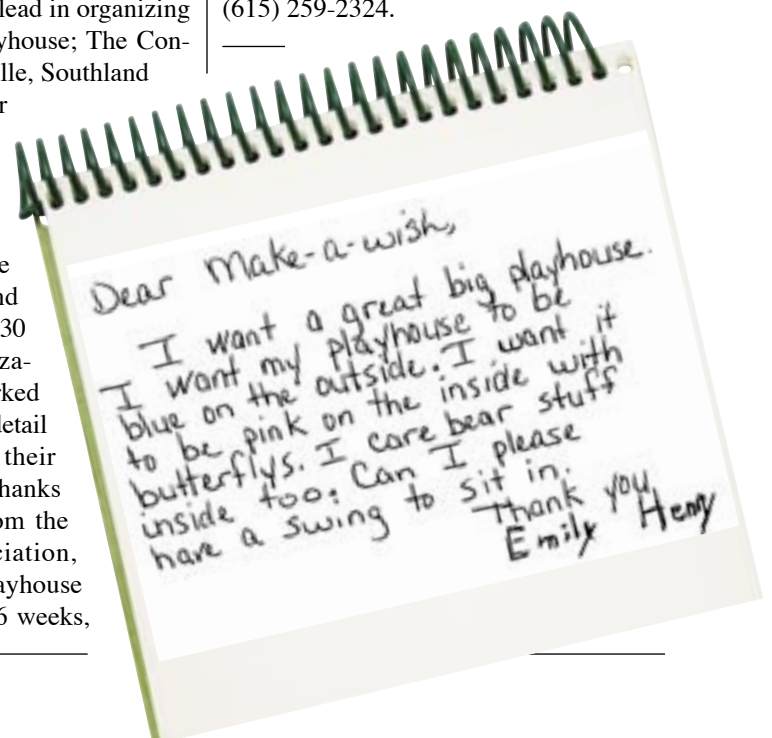 lead in organizing
yhouse; The Con-
lle, Southland
r
(615) 259-2324.
e
nd
30
za-
ked
detail
their
hanks
om the
ciation,
ayhouse
6 weeks,
Dear Make-a-wish,
I want a great big playhouse.
I want my playhouse to be
blue on the outside. I want it
to be pink on the inside with
butterflys. I care bear stuff
inside too. Can I please
have a swing to sit in.
Thank you
Emily Henry